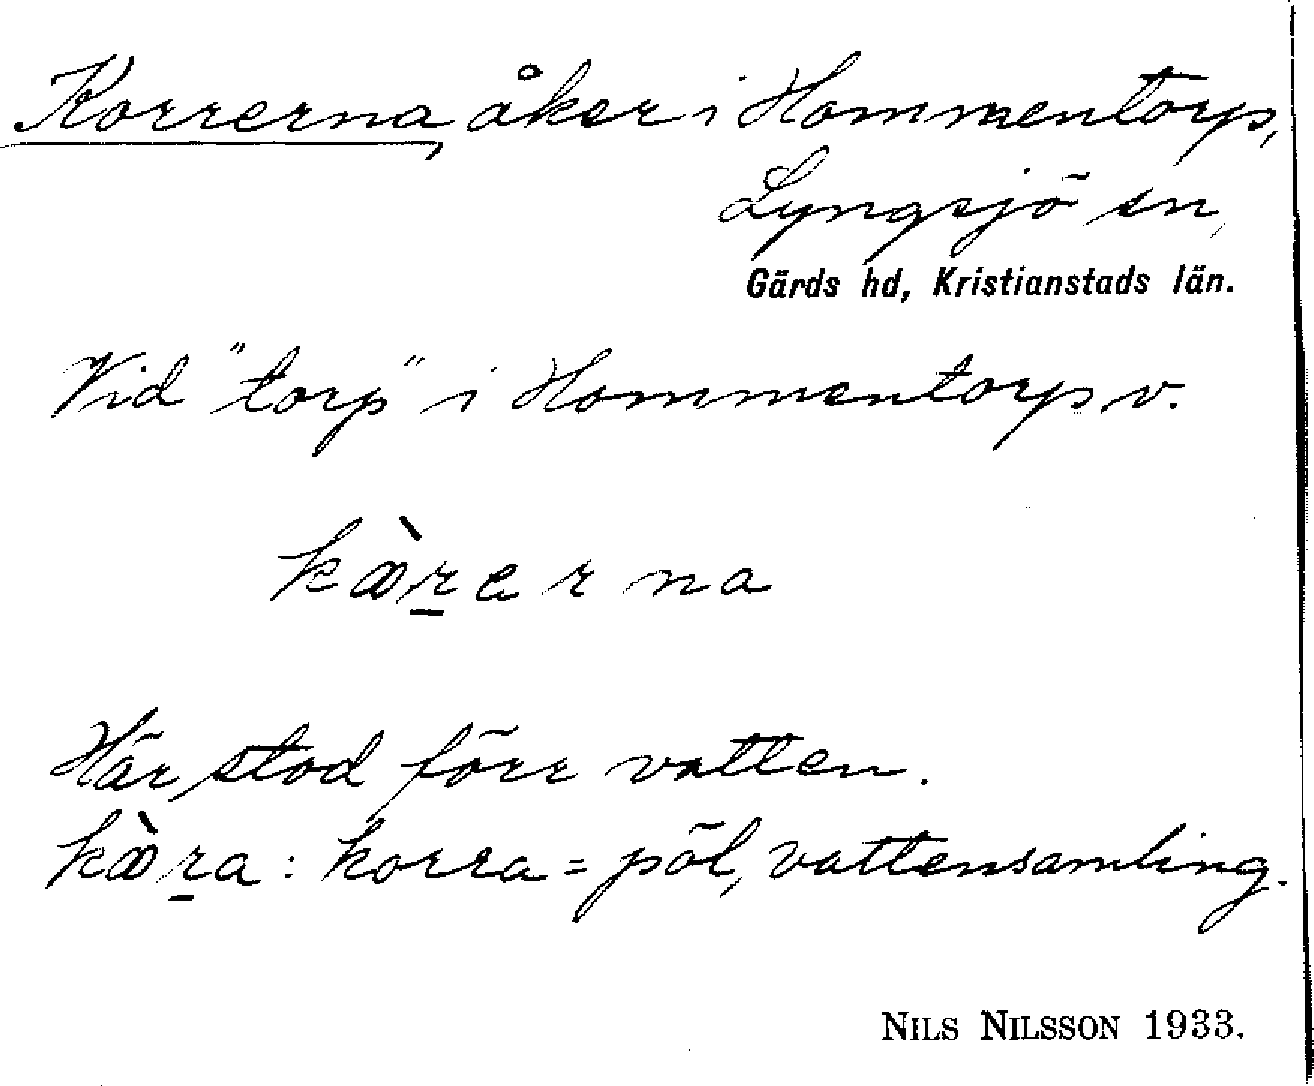 Korrerna, åker i Hommentorp,
Lyngsjö sn,
Gärds hd, Kristianstads län.
Vid "torp" i Hommentorp v.
kàr̲erna
Här stod förr vatten.
kàr̲a: korra = pöl, vattensamling.
NILS NILSSON 1933.